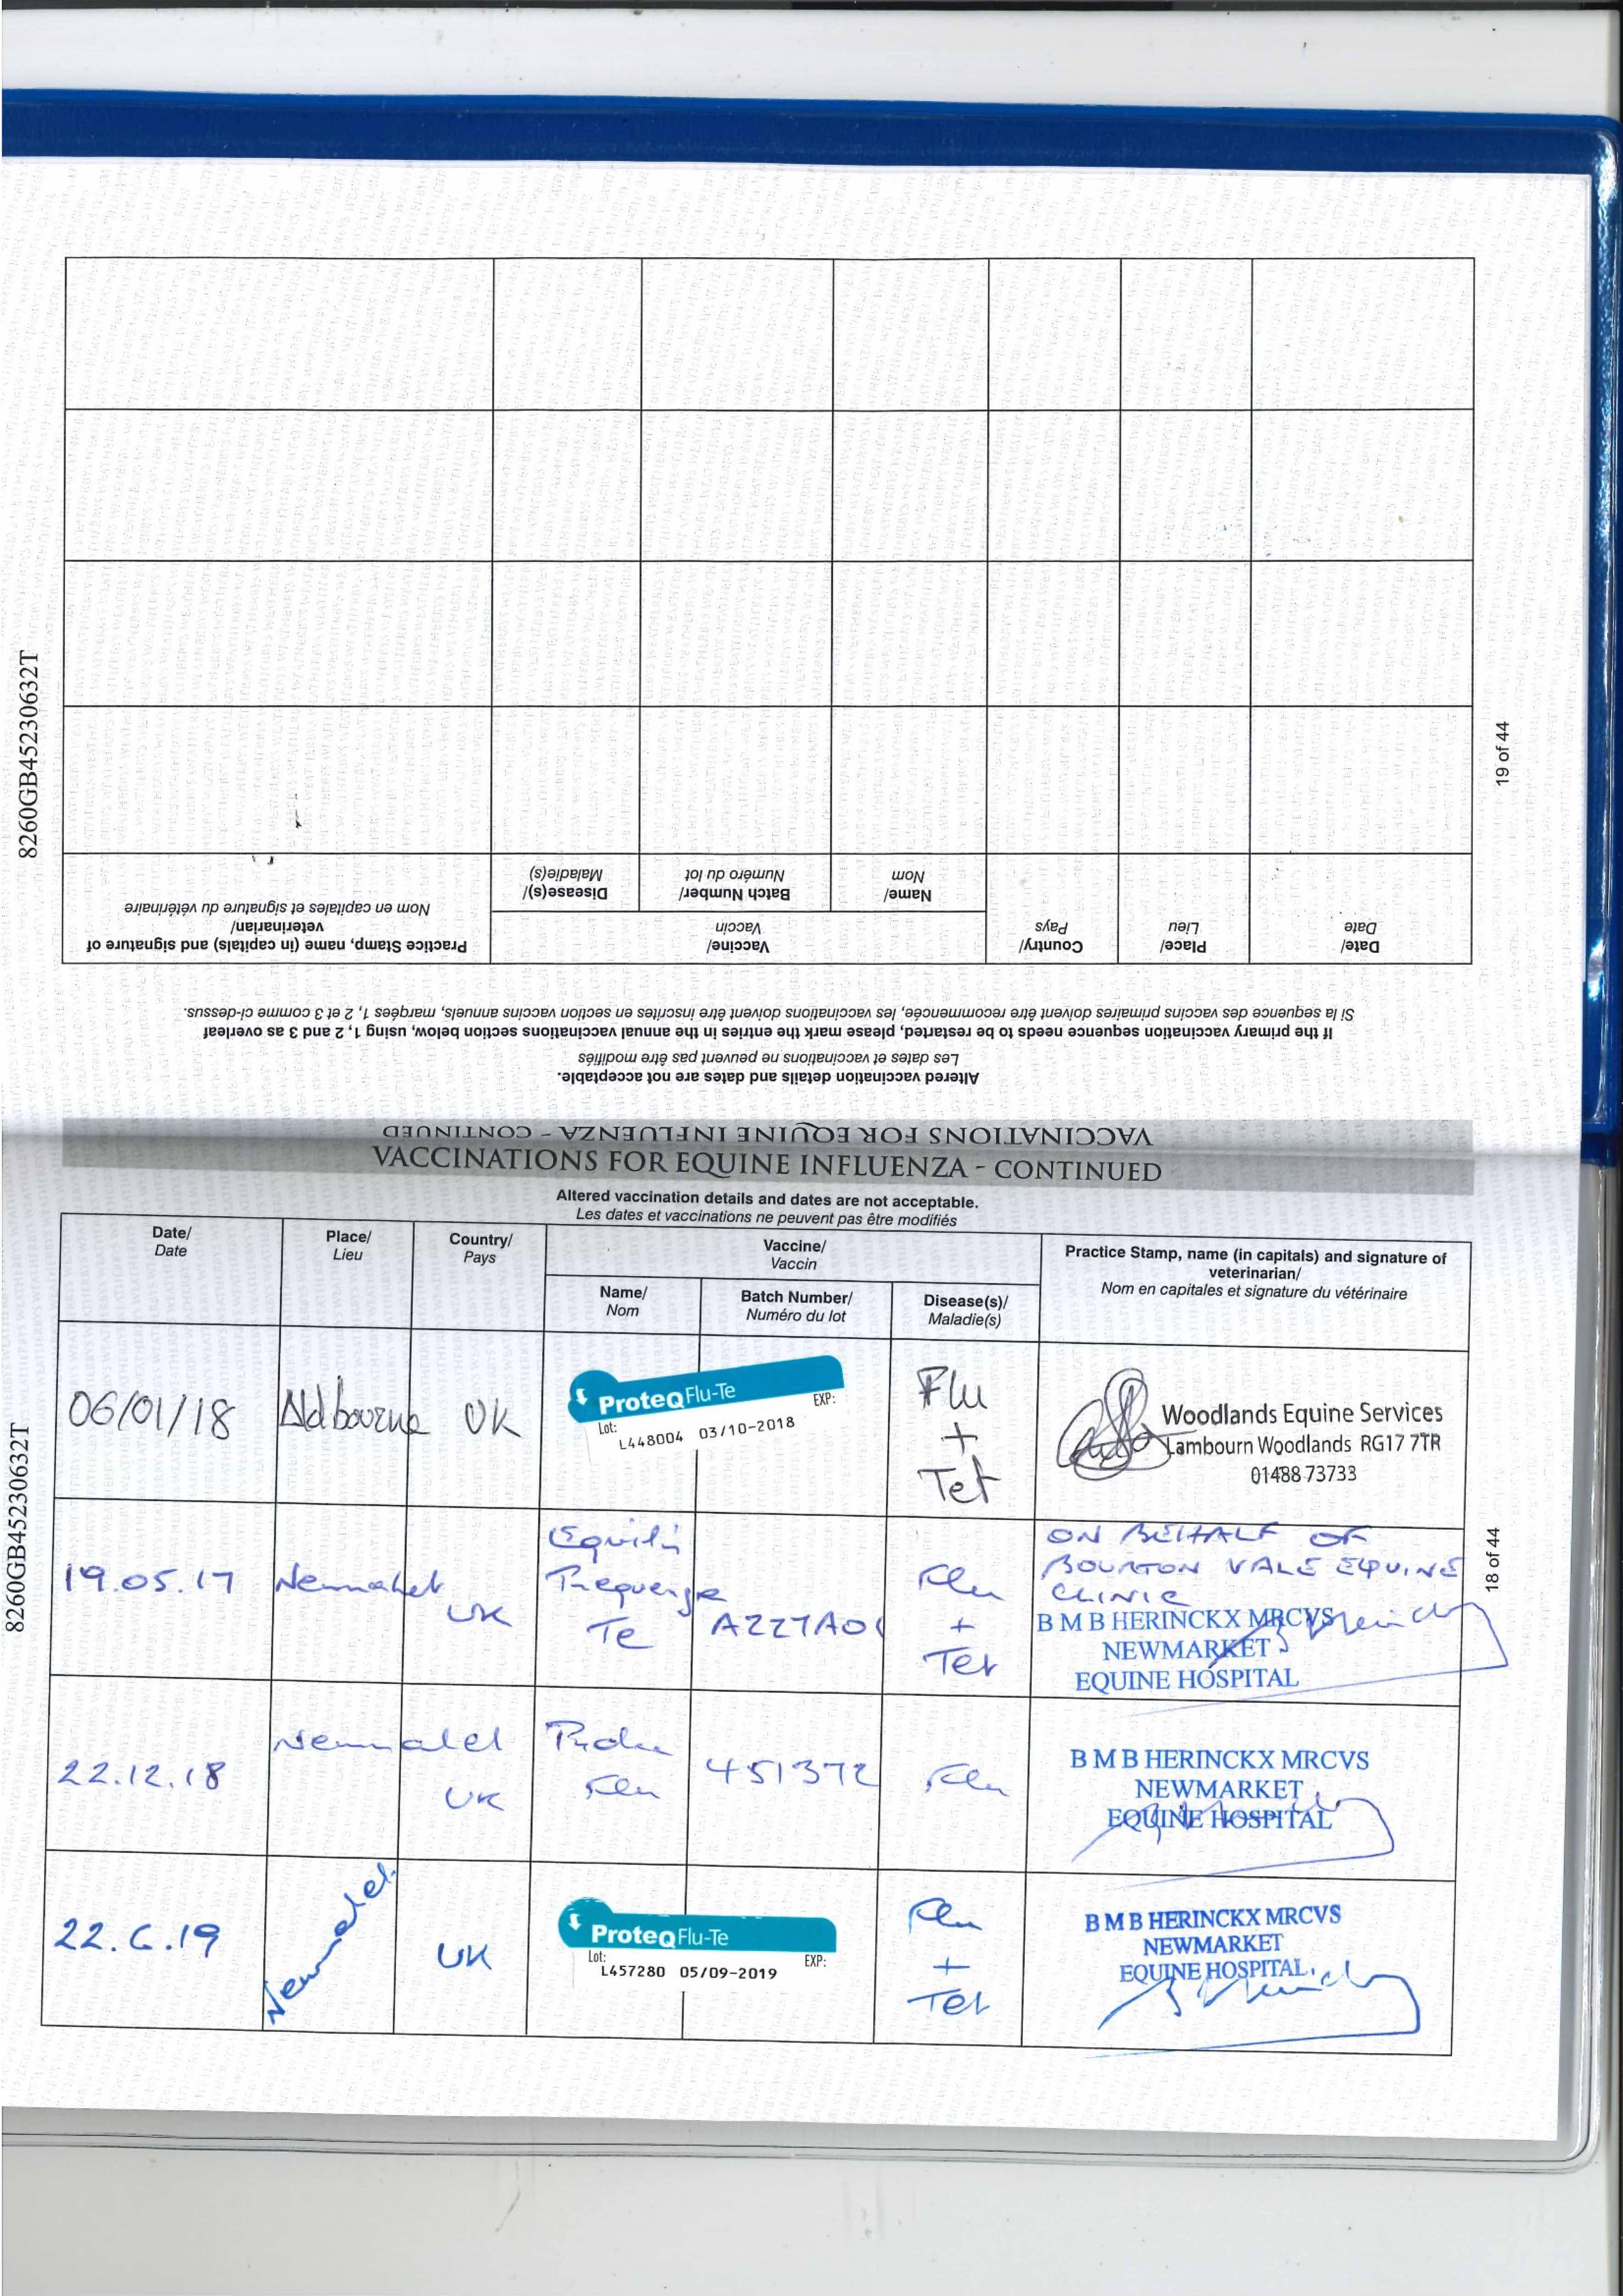 8260GB45230632T
19 of 44
VACCINATIONS FOR EQUINE INFLUENZA - CONTINUED
Altered vaccination details and dates are not acceptable.
Les dates et vaccinations ne peuvent pas être modifiés
If the primary vaccination sequence needs to be restarted, please mark the entries in the annual vaccinations section below, using 1, 2 and 3 as overleaf
Si la sequence des vaccins primaires doivent être recommencée, les vaccinations doivent être inscrites en section vaccins annuels, marqées 1, 2 et 3 comme ci-dessus.
Date/
Date
Place/
Lieu
Country/
Pays
Vaccine/
Vaccin
Name/
Nom
Batch Number/
Numéro du lot
Disease(s)/
Maladie(s)
Practice Stamp, name (in capitals) and signature of
veterinarian/
Nom en capitales et signature du vétérinaire
VACCINATIONS FOR EQUINE INFLUENZA - CONTINUED
Altered vaccination details and dates are not acceptable.
Les dates et vaccinations ne peuvent pas être modifiés
Date/
Date
Place/
Lieu
Country/
Pays
Vaccine/
Vaccin
Name/
Nom
Batch Number/
Numéro du lot
Disease(s)/
Maladie(s)
Practice Stamp, name (in capitals) and signature of
veterinarian/
Nom en capitales et signature du vétérinaire
06/01/18
Aldbourne
UK
ProteqFlu-Te
Lot: EXP:
L448004 03/10-2018
Flu
+
Tet
Woodlands Equine Services
Lambourn Woodlands RG17 7TR
01488 73733
19.05.17
Newmarket
UK
Equilis
Prequenza
Te
Flu
+
Tet
ON BEHALF OF
BOURTON VALE EQUINE
CLINIC
B M B HERINCKX MRCVS
NEWMARKET
EQUINE HOSPITAL
22.12.18
Newmarket
UK
Flu
451372
Flu
B M B HERINCKX MRCVS
NEWMARKET
EQUINE HOSPITAL
22.6.19
Newmarket
UK
ProteqFlu-Te
Lot: EXP:
L457280 05/09-2019
Flu
+
Tet
B M B HERINCKX MRCVS
NEWMARKET
EQUINE HOSPITAL
8260GB45230632T
18 of 44